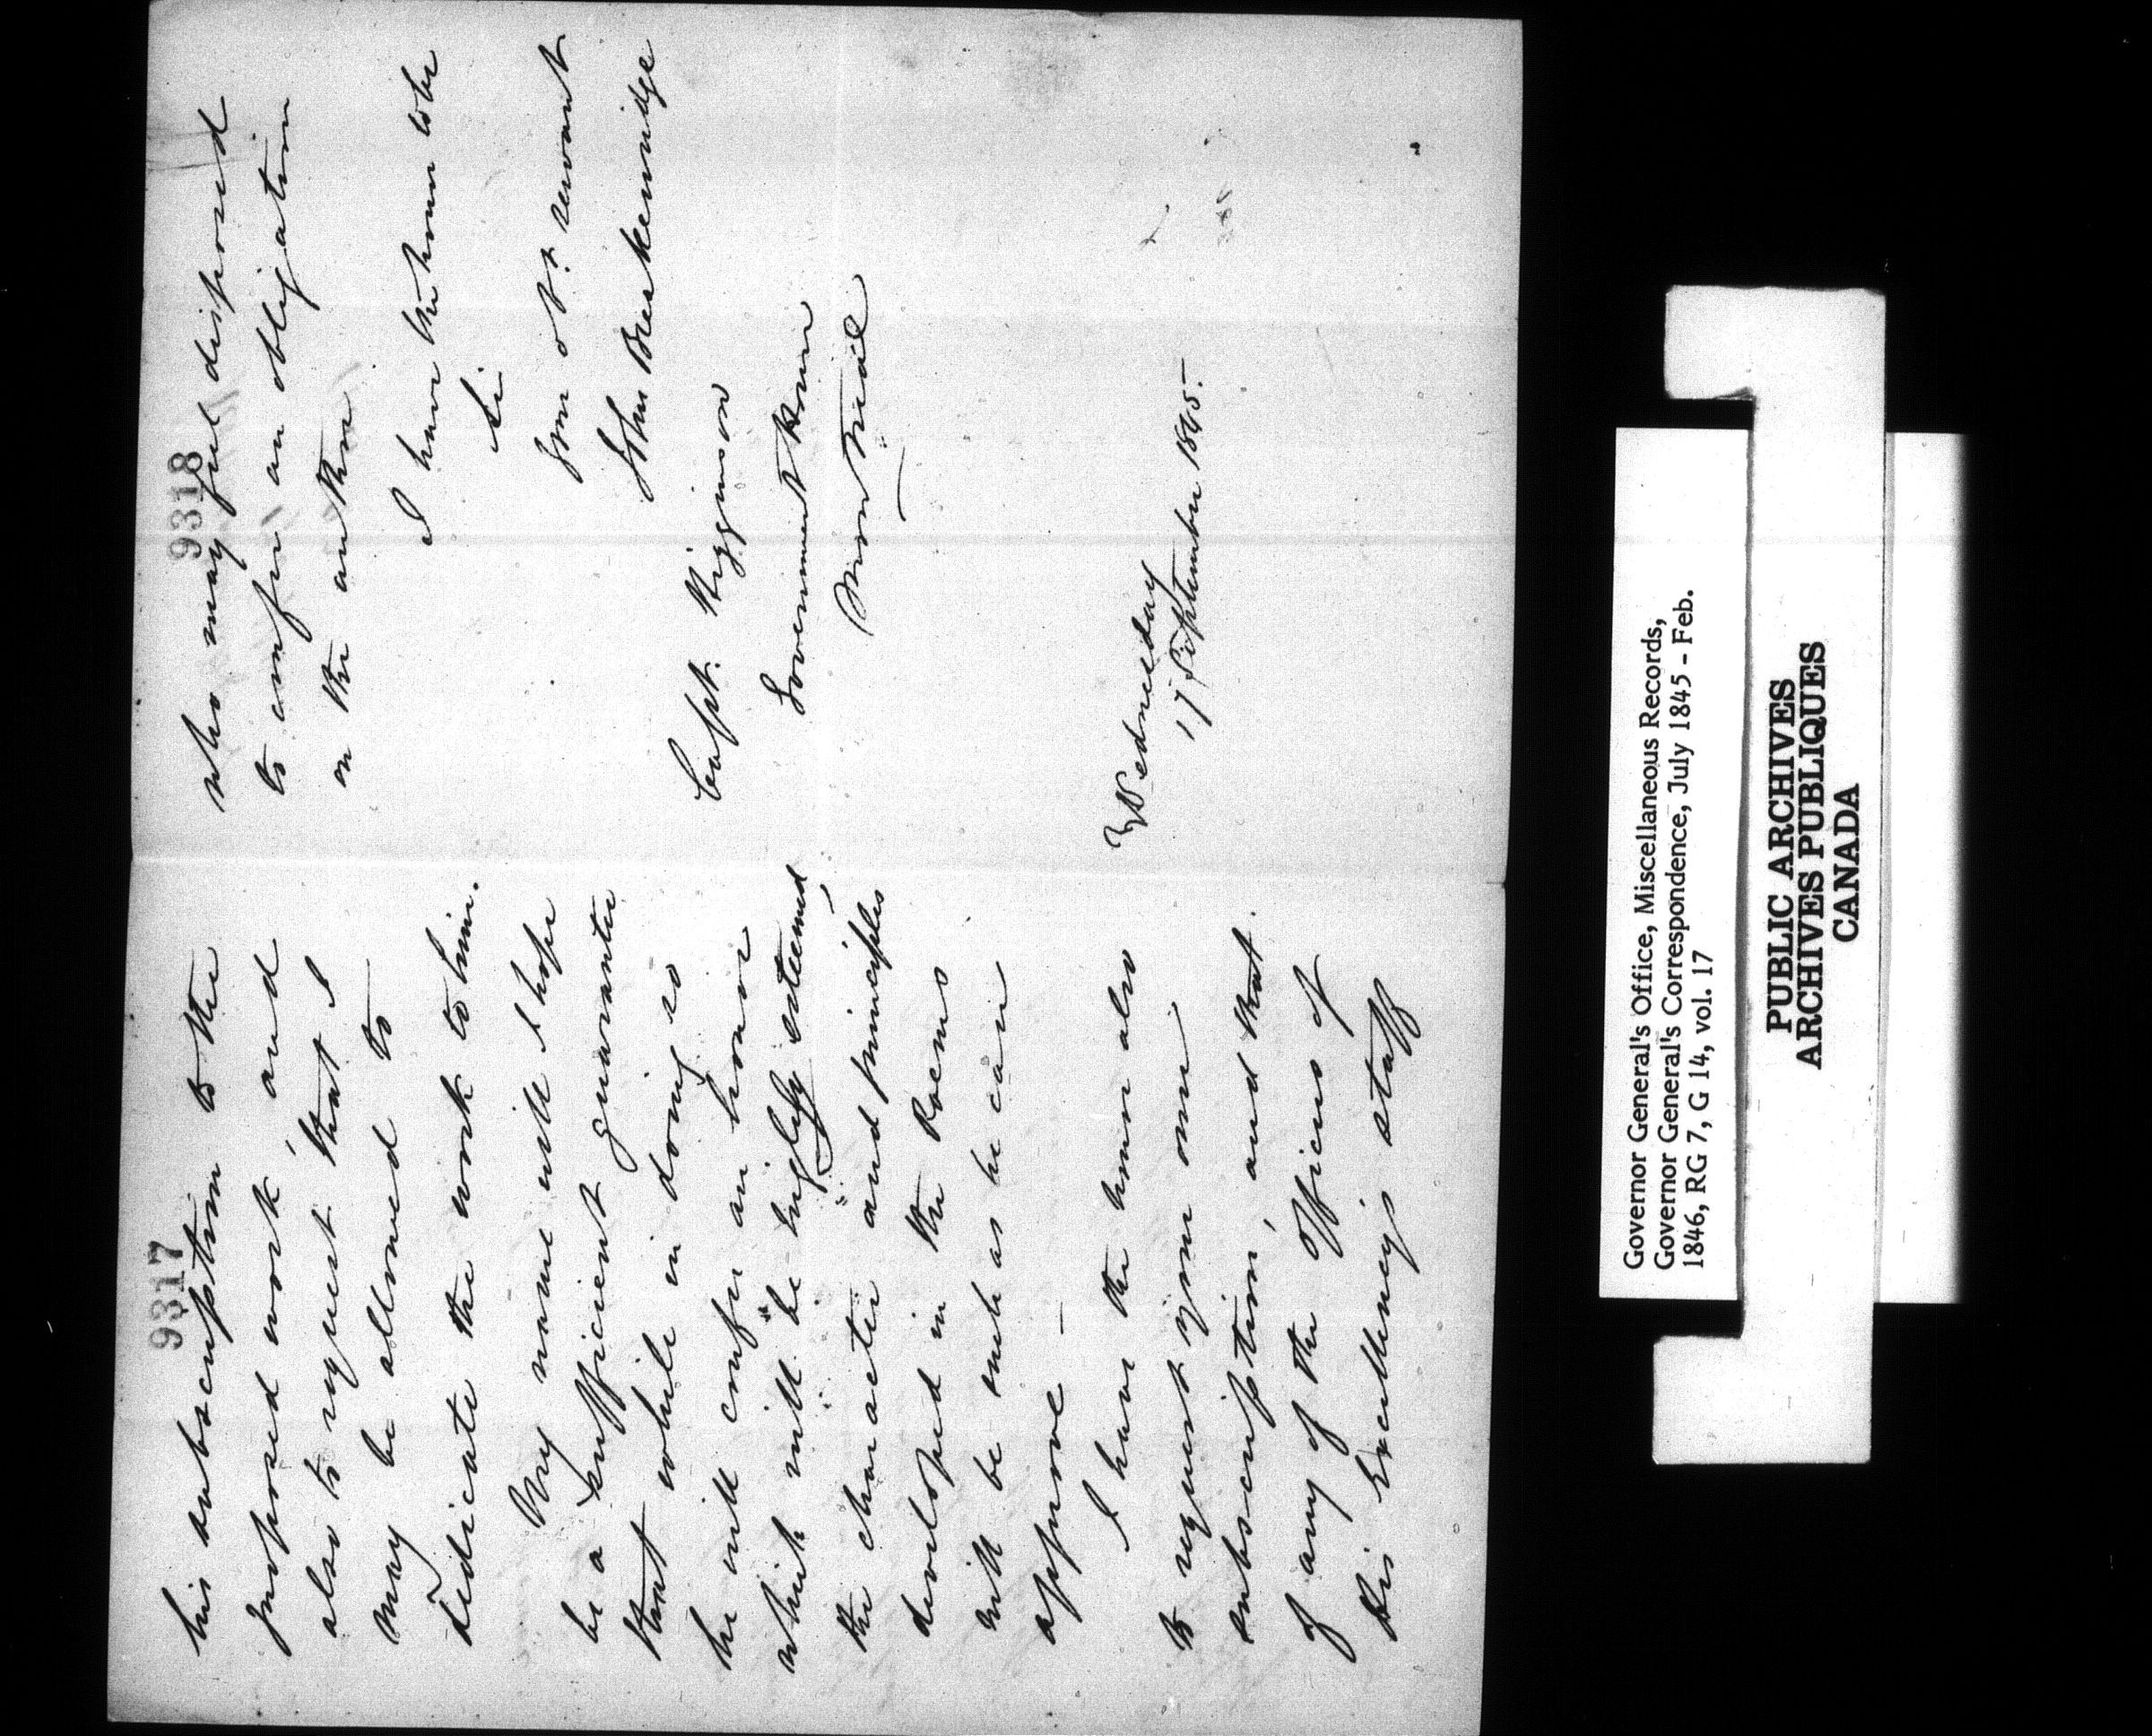 9317
his subscription to the
proposed work, and
also to request that I
may be allowed to
dedicate the work to him.
My name will I hope
be a sufficient guarantee
that while in doing so
he will confer an honor
which will be highly esteemed,
the character and principles
developed in the Poems
will be such as he can
approve —
I have the honor also
to request your own
subscription, and that
of any of the officers of
His Excellency's staff
9318
who may feel disposed
to confer an obligation
on the author.
I have the honor to be
Sir
your obt servant
John Breakenridge
Capt. Higginson
Government House
Montreal
—
Wednesday
17 September 1845.
Governor General's Office, Miscellaneous Records,
Governor General's Correspondence, July 1845 - Feb.
1846, RG 7, G 14, vol. 17
PUBLIC ARCHIVES
ARCHIVES PUBLIQUES
CANADA